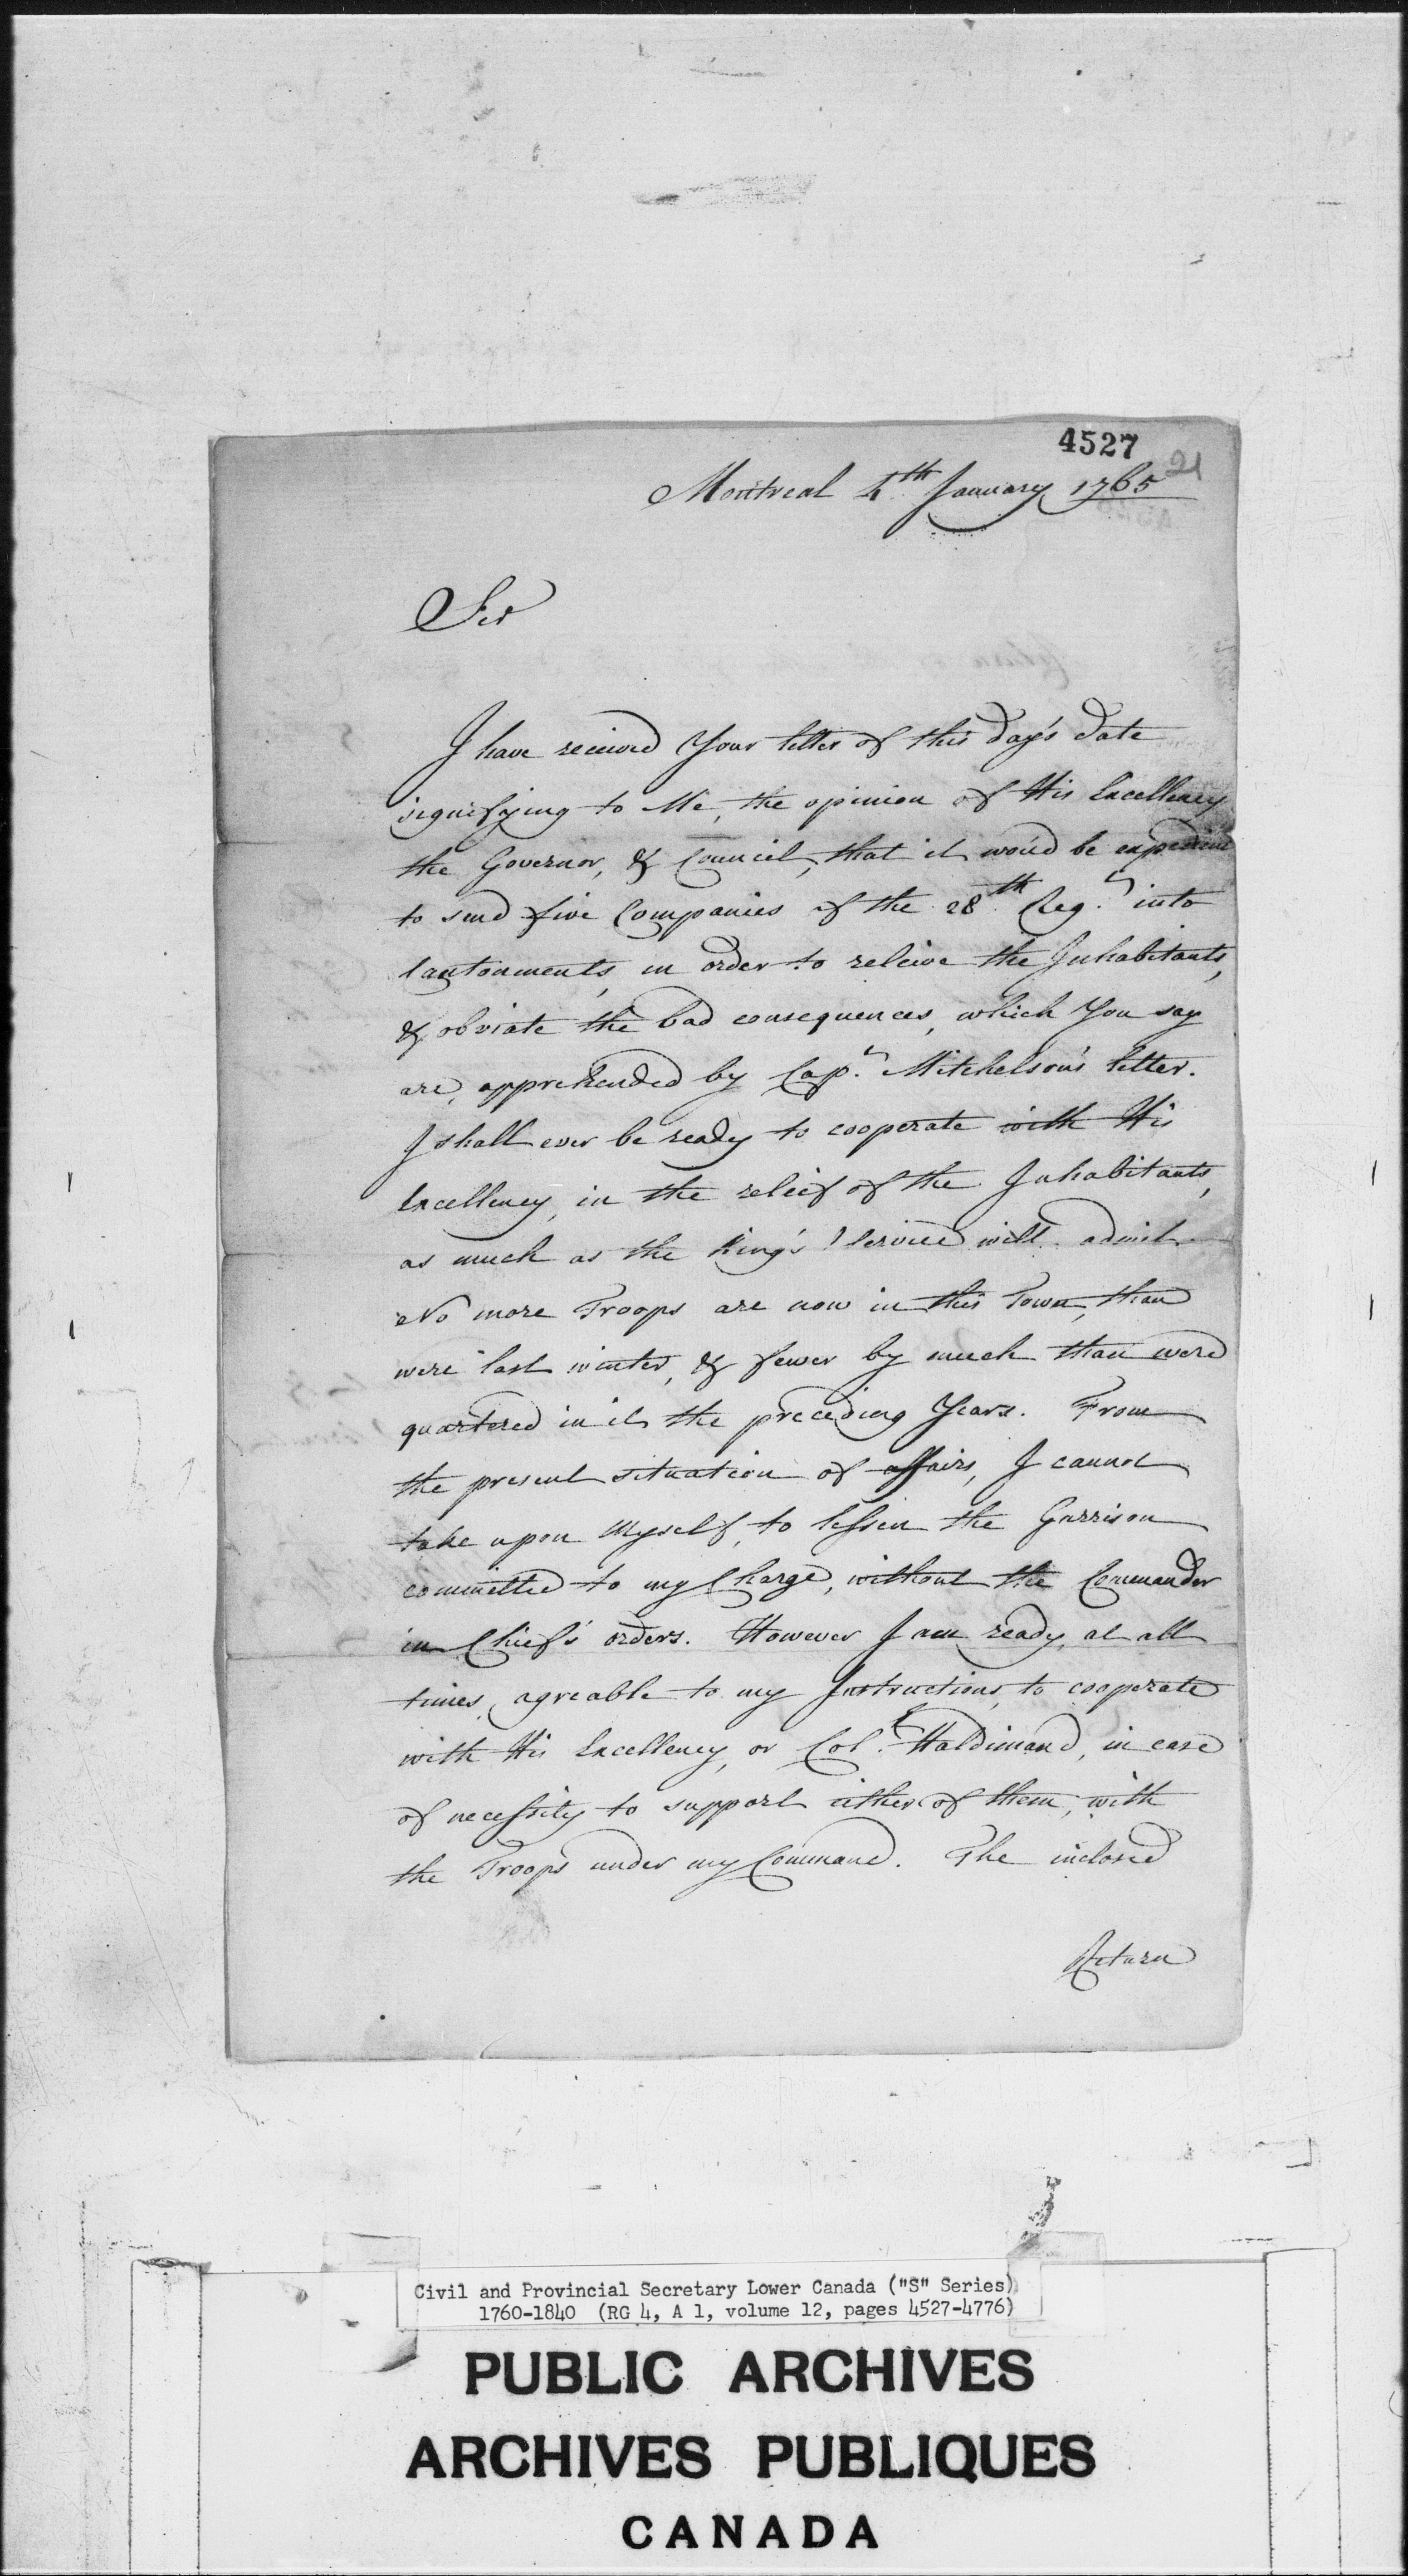 4527
21
Montreal 4th January 1765
Sir
I have received Your letter of this day's date
signifying to Me, the opinion of His Excellency
the Governor, & Council, that it wou'd be expedient
to send five Companies of the 28th Regt. into
Cantonments, in order to releive the Inhabitants,
& obviate the bad consequences, which You say
are, apprehended by Capt. Mitchelson's letter.
I shall ever be ready to cooperate with His
Excellency, in the releif of the Inhabitants,
as much as the King's Service will admit.
No more Troops are now in this Town, than
were last winter, & fewer by much than were
quartered in it the preceding Years. From
the present situation of affairs, I cannot
take upon Myself, to lessen the Garrison
committed to my Charge, without the Commander
in Chief's orders. However I am ready, at all
times, agreable to my Instructions, to cooperate
with His Excellency, or Col. Haldimand, in case
of necessity to support either of them, with
the Troops under my Command. The inclosed
Return
Civil and Provincial Secretary Lower Canada ("S" Series)
1760-1840 (RG 4, A 1, volume 12, pages 4527-4776)
PUBLIC ARCHIVES
ARCHIVES PUBLIQUES
CANADA